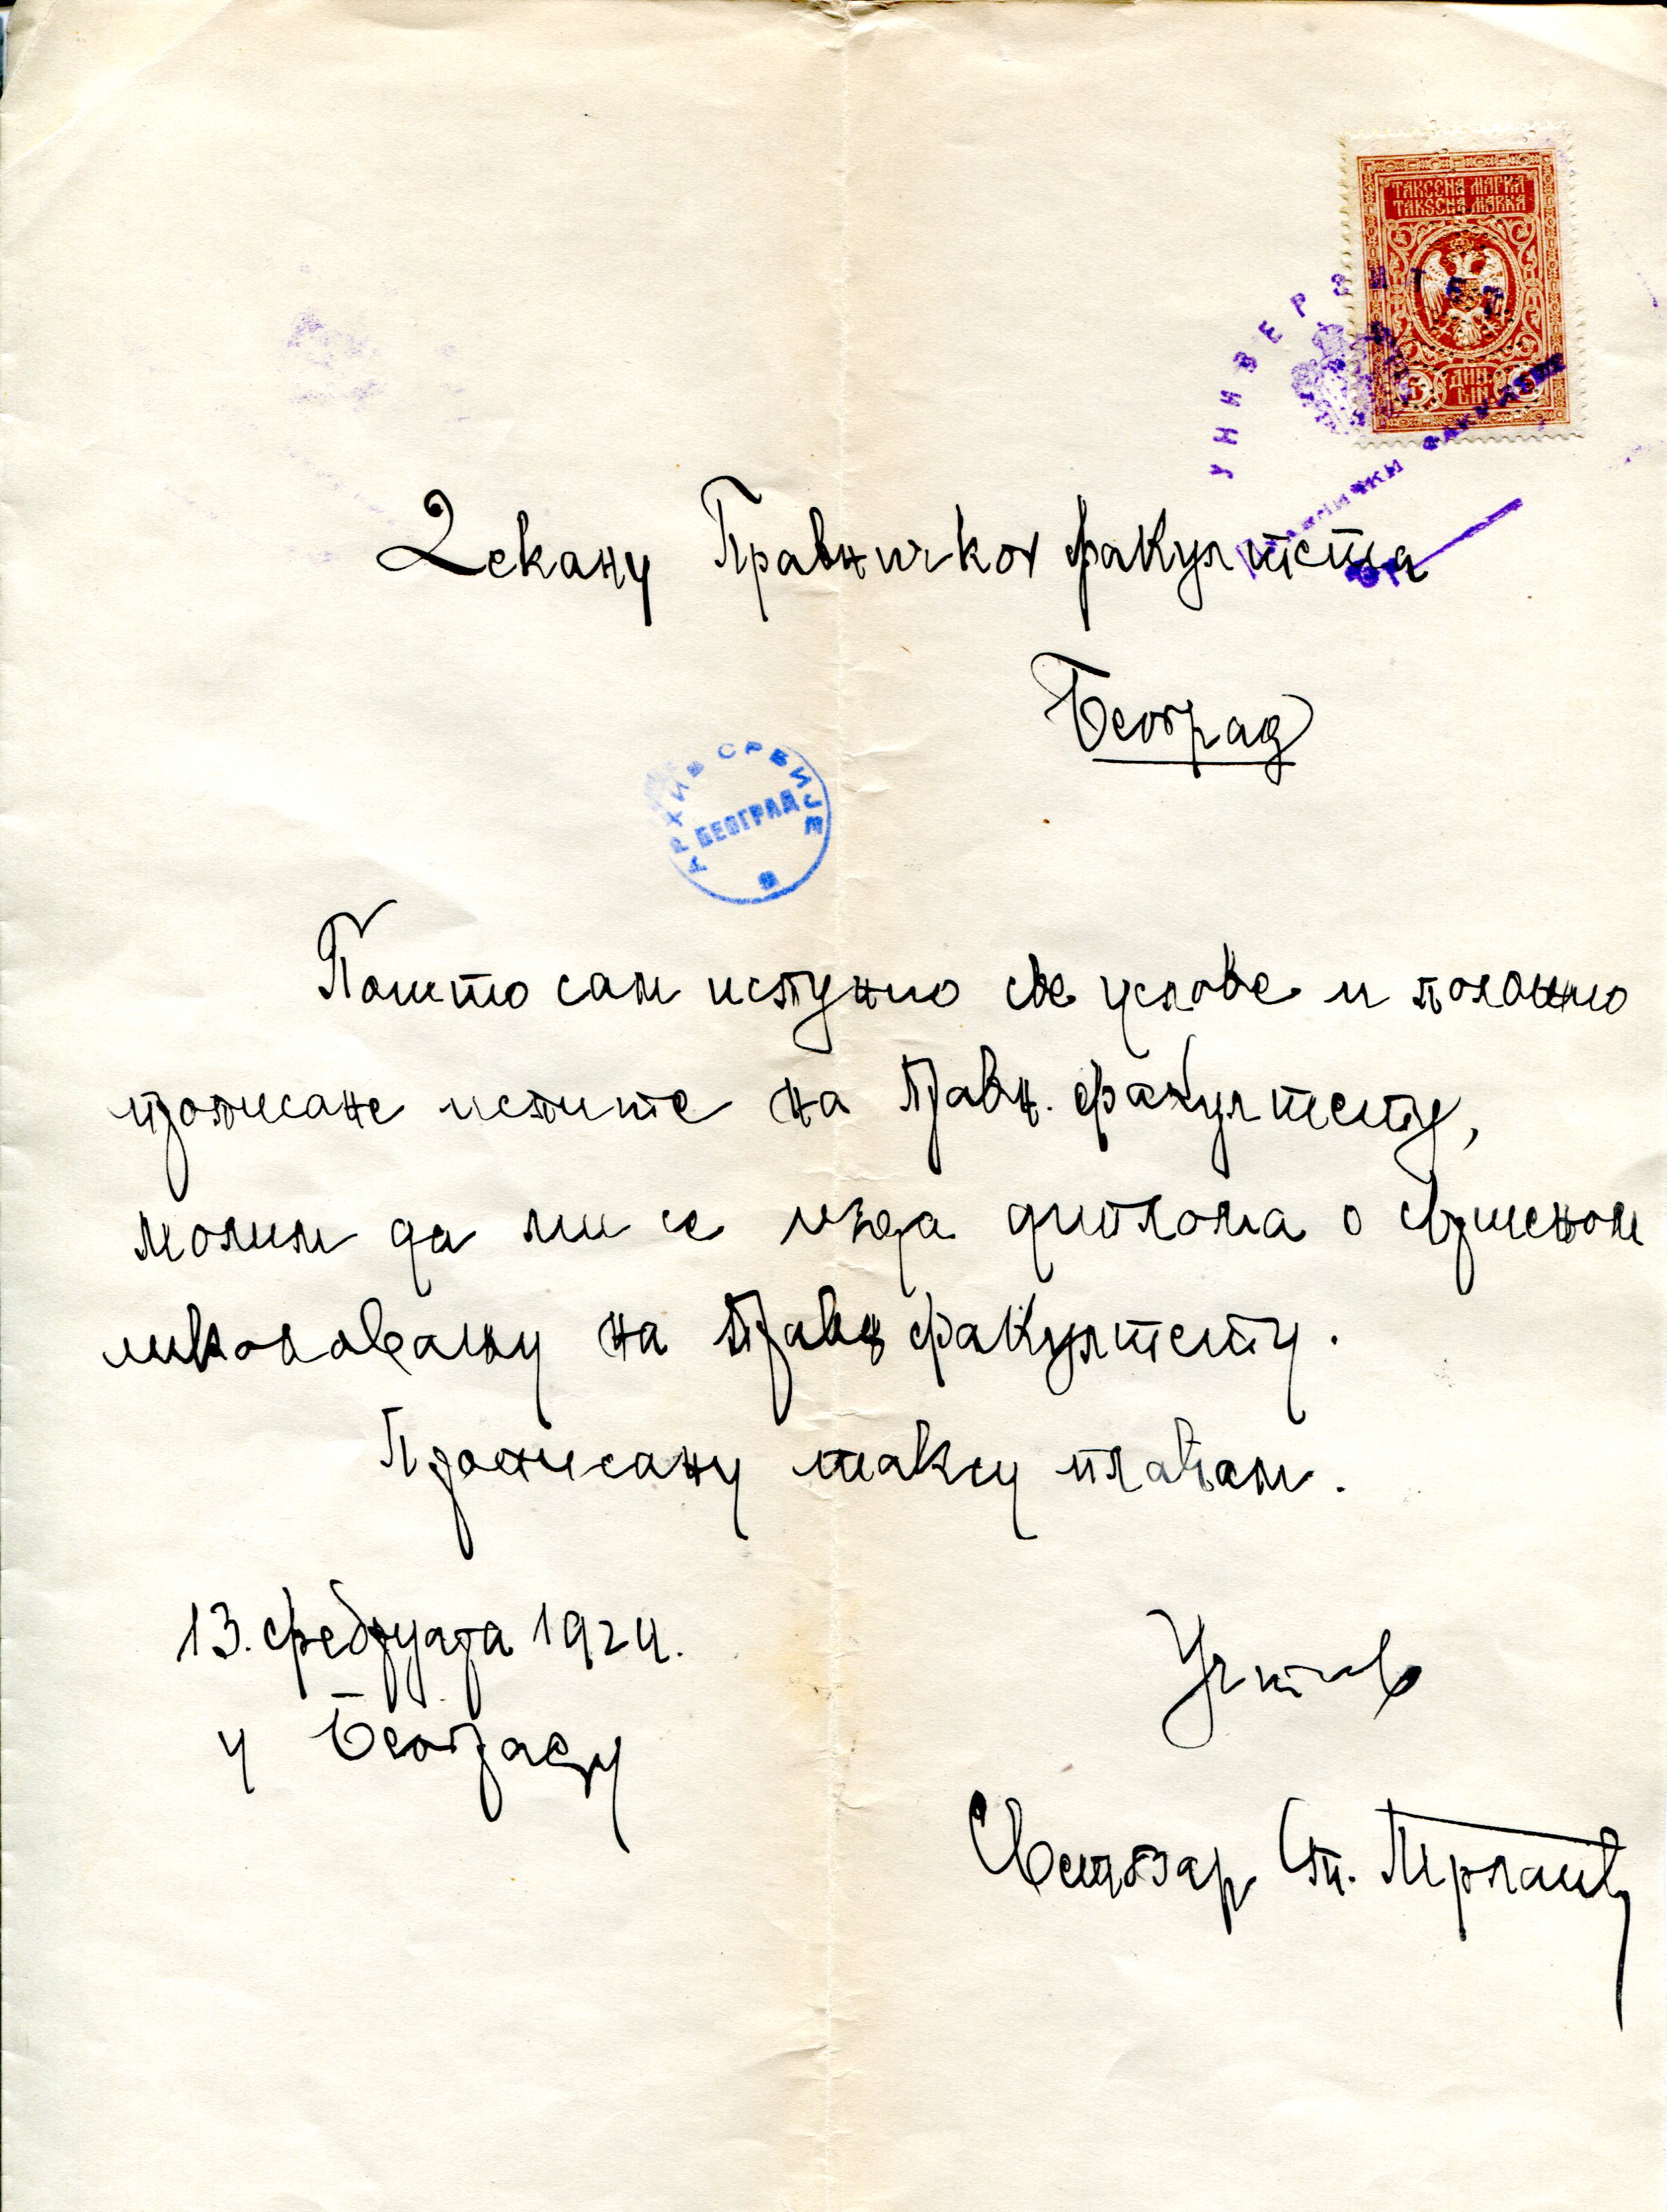 ТАКСЕНА МАРКА
TAKSENA MARKA
5 ДИН. DIN. 5
УНИВЕРЗИТЕТ
ПРАВНИЧКИ ФАКУЛТЕТ
Декану Правничког факултета
Београд
АРХИВ СРБИЈЕ
БЕОГРАД
Пошто сам испунио све услове и положио
прописане испите на Правн. факултету,
молим да ми се изда диплома о свршеном
школовању на Правн факултету.
Прописану таксу плаћам.
13. фебруара 1924.
у Београду
Учтив
Светозар Ст.